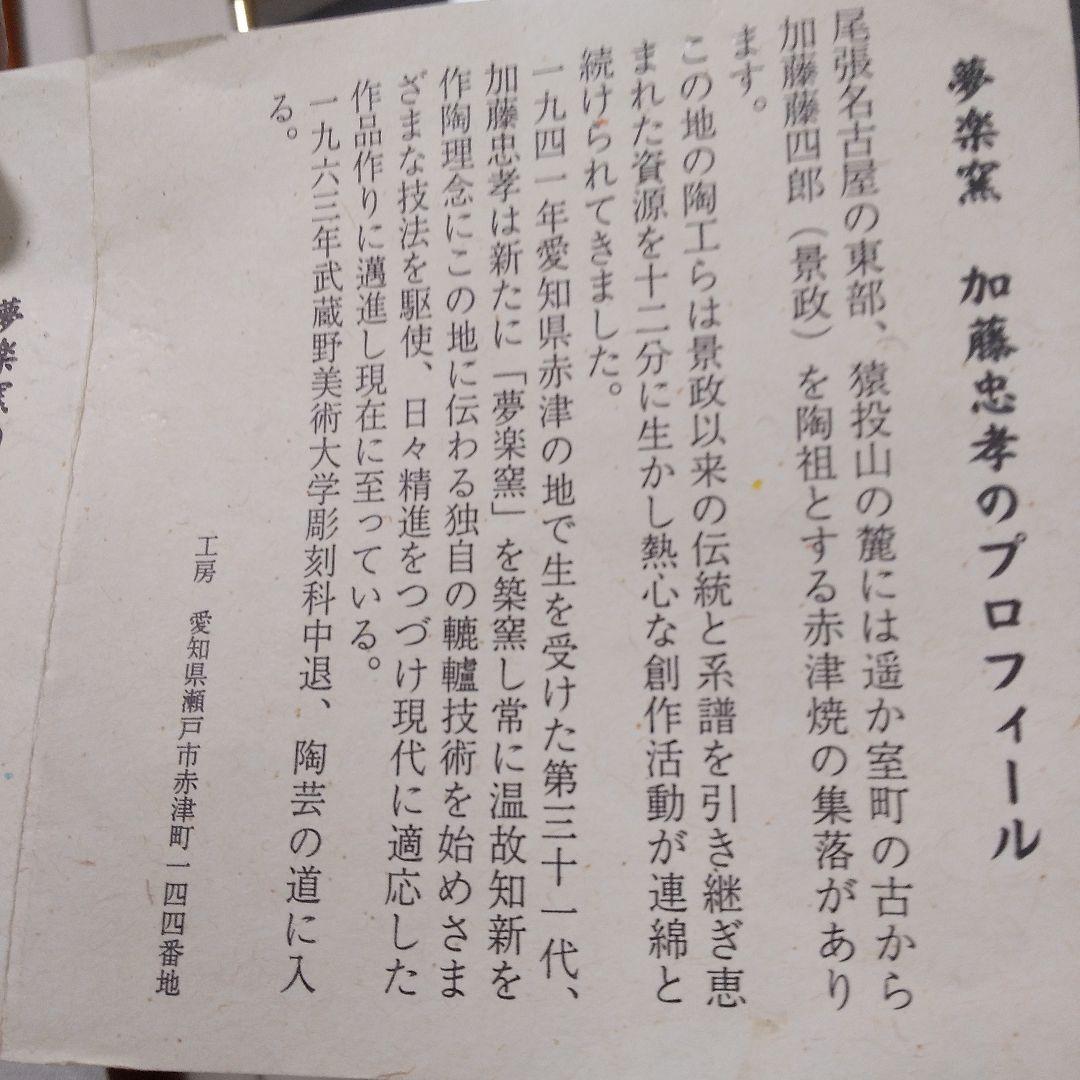 夢楽窯　加藤忠孝のプロフィール
尾張名古屋の東部、猿投山の麓には遥か室町の古から
加藤藤四郎（景政）を陶祖とする赤津焼の集落があり
ます。
この地の陶工らは景政以来の伝統と系譜を引き継ぎ恵
まれた資源を十二分に生かし熱心な創作活動が連綿と
続けられてきました。
一九四一年愛知県赤津の地で生を受けた第三十一代、
加藤忠孝は新たに「夢楽窯」を築窯し常に温故知新を
作陶理念にこの地に伝わる独自の轆轤技術を始めさま
ざまな技法を駆使、日々精進をつづけ現代に適応した
作品作りに邁進し現在に至っている。
一九六三年武蔵野美術大学彫刻科中退、陶芸の道に入
る。
工房　愛知県瀬戸市赤津町一四四番地
夢楽窯